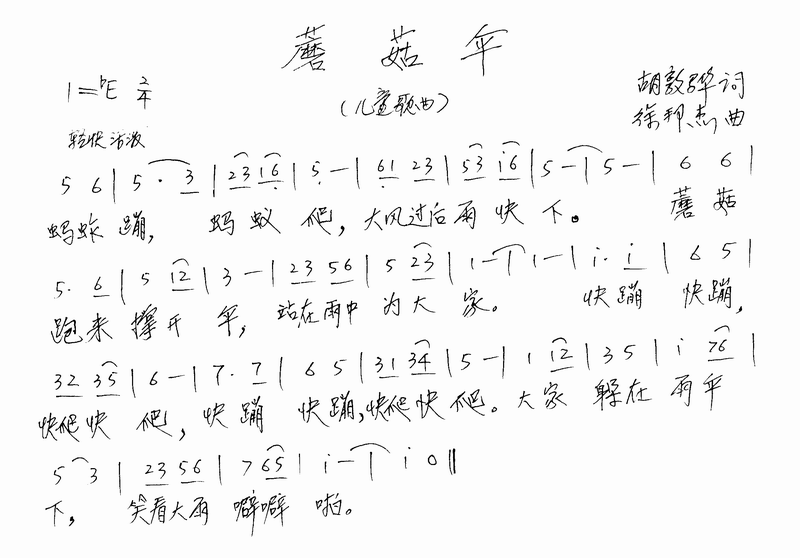 蘑菇伞
（儿童歌曲）
1=♭E 2/4
胡敦骅词
徐邦杰曲
轻快活泼
5 6 | 5 · 3 | 23 16 | 5 — | 61 23 | 53 i6 | 5 — | 5 — | 6 6 |
蚂蚱蹦， 蚂蚁爬，大风过后雨快下。 蘑菇
5· 6 | 5 i2 | 3 — | 23 56 | 5 23 | 1 — | 1 — | i· i | 6 5 |
跑来撑开伞，站在雨中为大家。 快蹦快蹦，
32 35 | 6 — | 7· 7 | 6 5 | 31 34 | 5 — | 1 12 | 3 5 | i 76 |
快爬快爬，快蹦快蹦，快爬快爬。大家躲在雨伞
5 3 | 23 56 | 7 65 | i — | i 0 ‖
下， 笑看大雨噼噼啪。